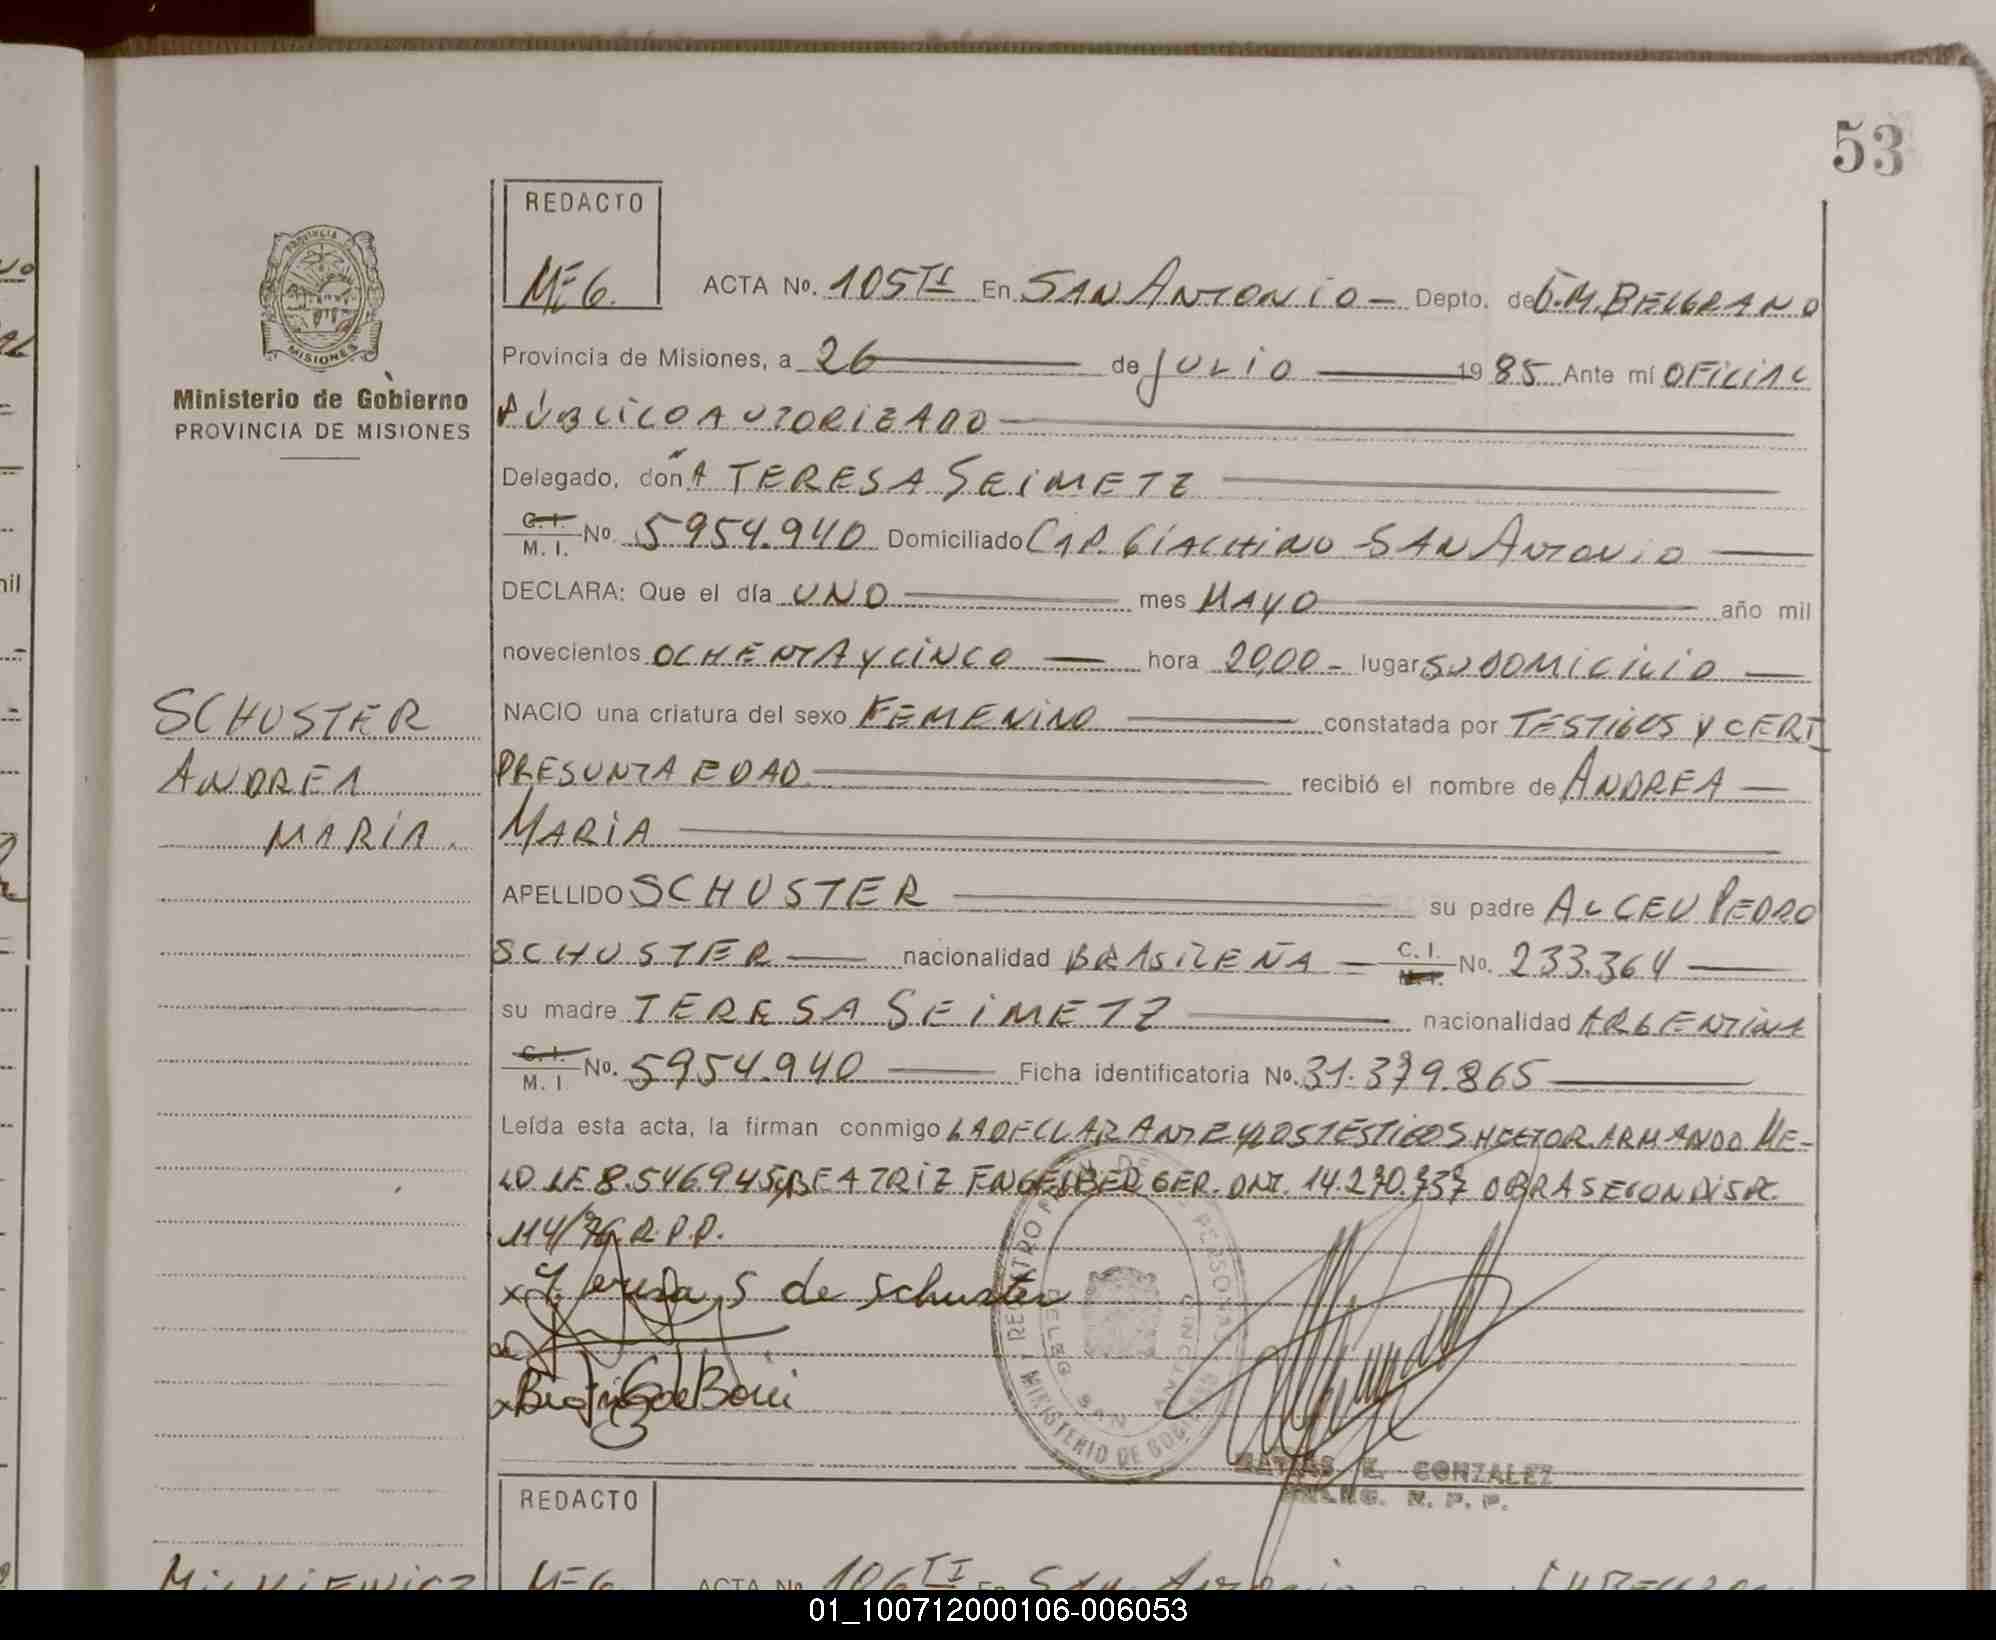 53
REDACTO
MEG.
ACTA No. 105 TI En SAN ANTONIO - Depto. de G.M. BELGRANO
PROVINCIA
MISIONES
Ministerio de Gobierno
PROVINCIA DE MISIONES
Provincia de Misiones, a 26 de JULIO 1985 Ante mí OFICIAL
PÚBLICO AUTORIZADO
Delegado, doñA TERESA SEIMETZ
C. I. M. I. No 5954.940 Domiciliado CAP. GIACHINO - SAN ANTONIO
DECLARA: Que el día UNO mes MAYO año mil
novecientos OCHENTA Y CINCO hora 20,00 - lugar SU DOMICILIO
NACIO una criatura del sexo FEMENINO constatada por TESTIGOS Y CERT
PRESUNTA EDAD recibió el nombre de ANDREA
MARIA
SCHUSTER
ANDREA
MARIA.
APELLIDO SCHUSTER su padre ALCEU PEDRO
SCHUSTER nacionalidad BRASILEÑA C. I. M. I. No. 233.364
su madre TERESA SEIMETZ nacionalidad ARGENTINA
C. I. M. I No. 5954.940 Ficha identificatoria No. 31.379.865
Leída esta acta, la firman conmigo LA DECLARANTE Y LOS TESTIGOS HECTOR ARMANDO ME-
LO LE 8.546.945 y BEATRIZ ENGELBERGER. DNI. 14.270.737 OBRA SEGÚN DISP.
114/76 R.P.P.
x Teresa S de Schuster
REGISTRO DE PERSONAS
MINISTERIO DE GOBIERNO
DELEG. SAN ANTONIO
MATIAS E. GONZALEZ
R. P. P.
REDACTO
MEG.
ACTA No 106 TI En SAN ANTONIO
MILKIEWICZ
01_100712000106-006053